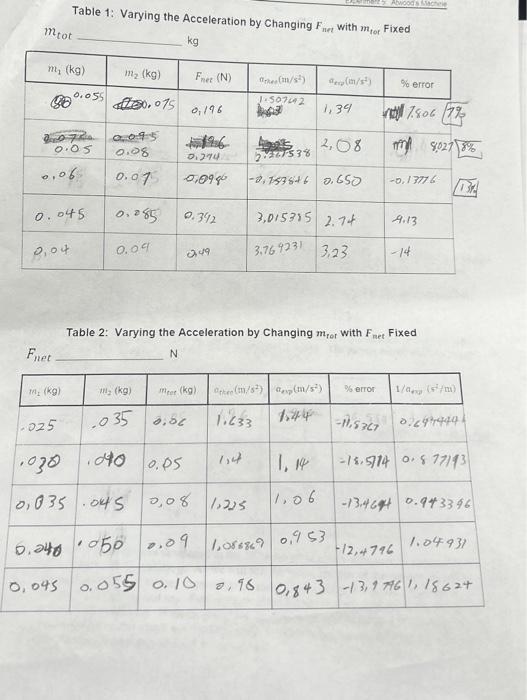 Atwood's Machine
Table 1: Varying the Acceleration by Changing Fnet with mtot Fixed
mtot ________ kg
m₁ (kg) m₂ (kg) Fnet (N) atheo(m/s²) aexp(m/s²) % error
0.055 0.075 0,196 1.507692 1,39 7.806 7%
0.05 0.08 0.294 2.261538 2,08 8,027 8%
0.06 0.07 0,0980 -0,753846 0.650 -0,13776 13%
0.045 0.085 0.392 3,015385 2.74 -9.13
0,04 0.09 0.49 3.769231 3,23 -14
Table 2: Varying the Acceleration by Changing mtot with Fnet Fixed
Fnet ________ N
m₁ (kg) m₂ (kg) mtot (kg) atheo(m/s²) aexp(m/s²) % error 1/aexp (s²/m)
.025 .035 0.06 1.633 1.44 0.694444
.030 .040 0.05 1,4 1,14 -18.5714 0.877193
0,035 .045 0,08 1,225 1,06 -13.4694 0.943396
0.040 .050 0.09 1,088889 0,953 -12,4796 1.04931
0,045 0.055 0.10 0,98 0,843 -13,9796 1,18624